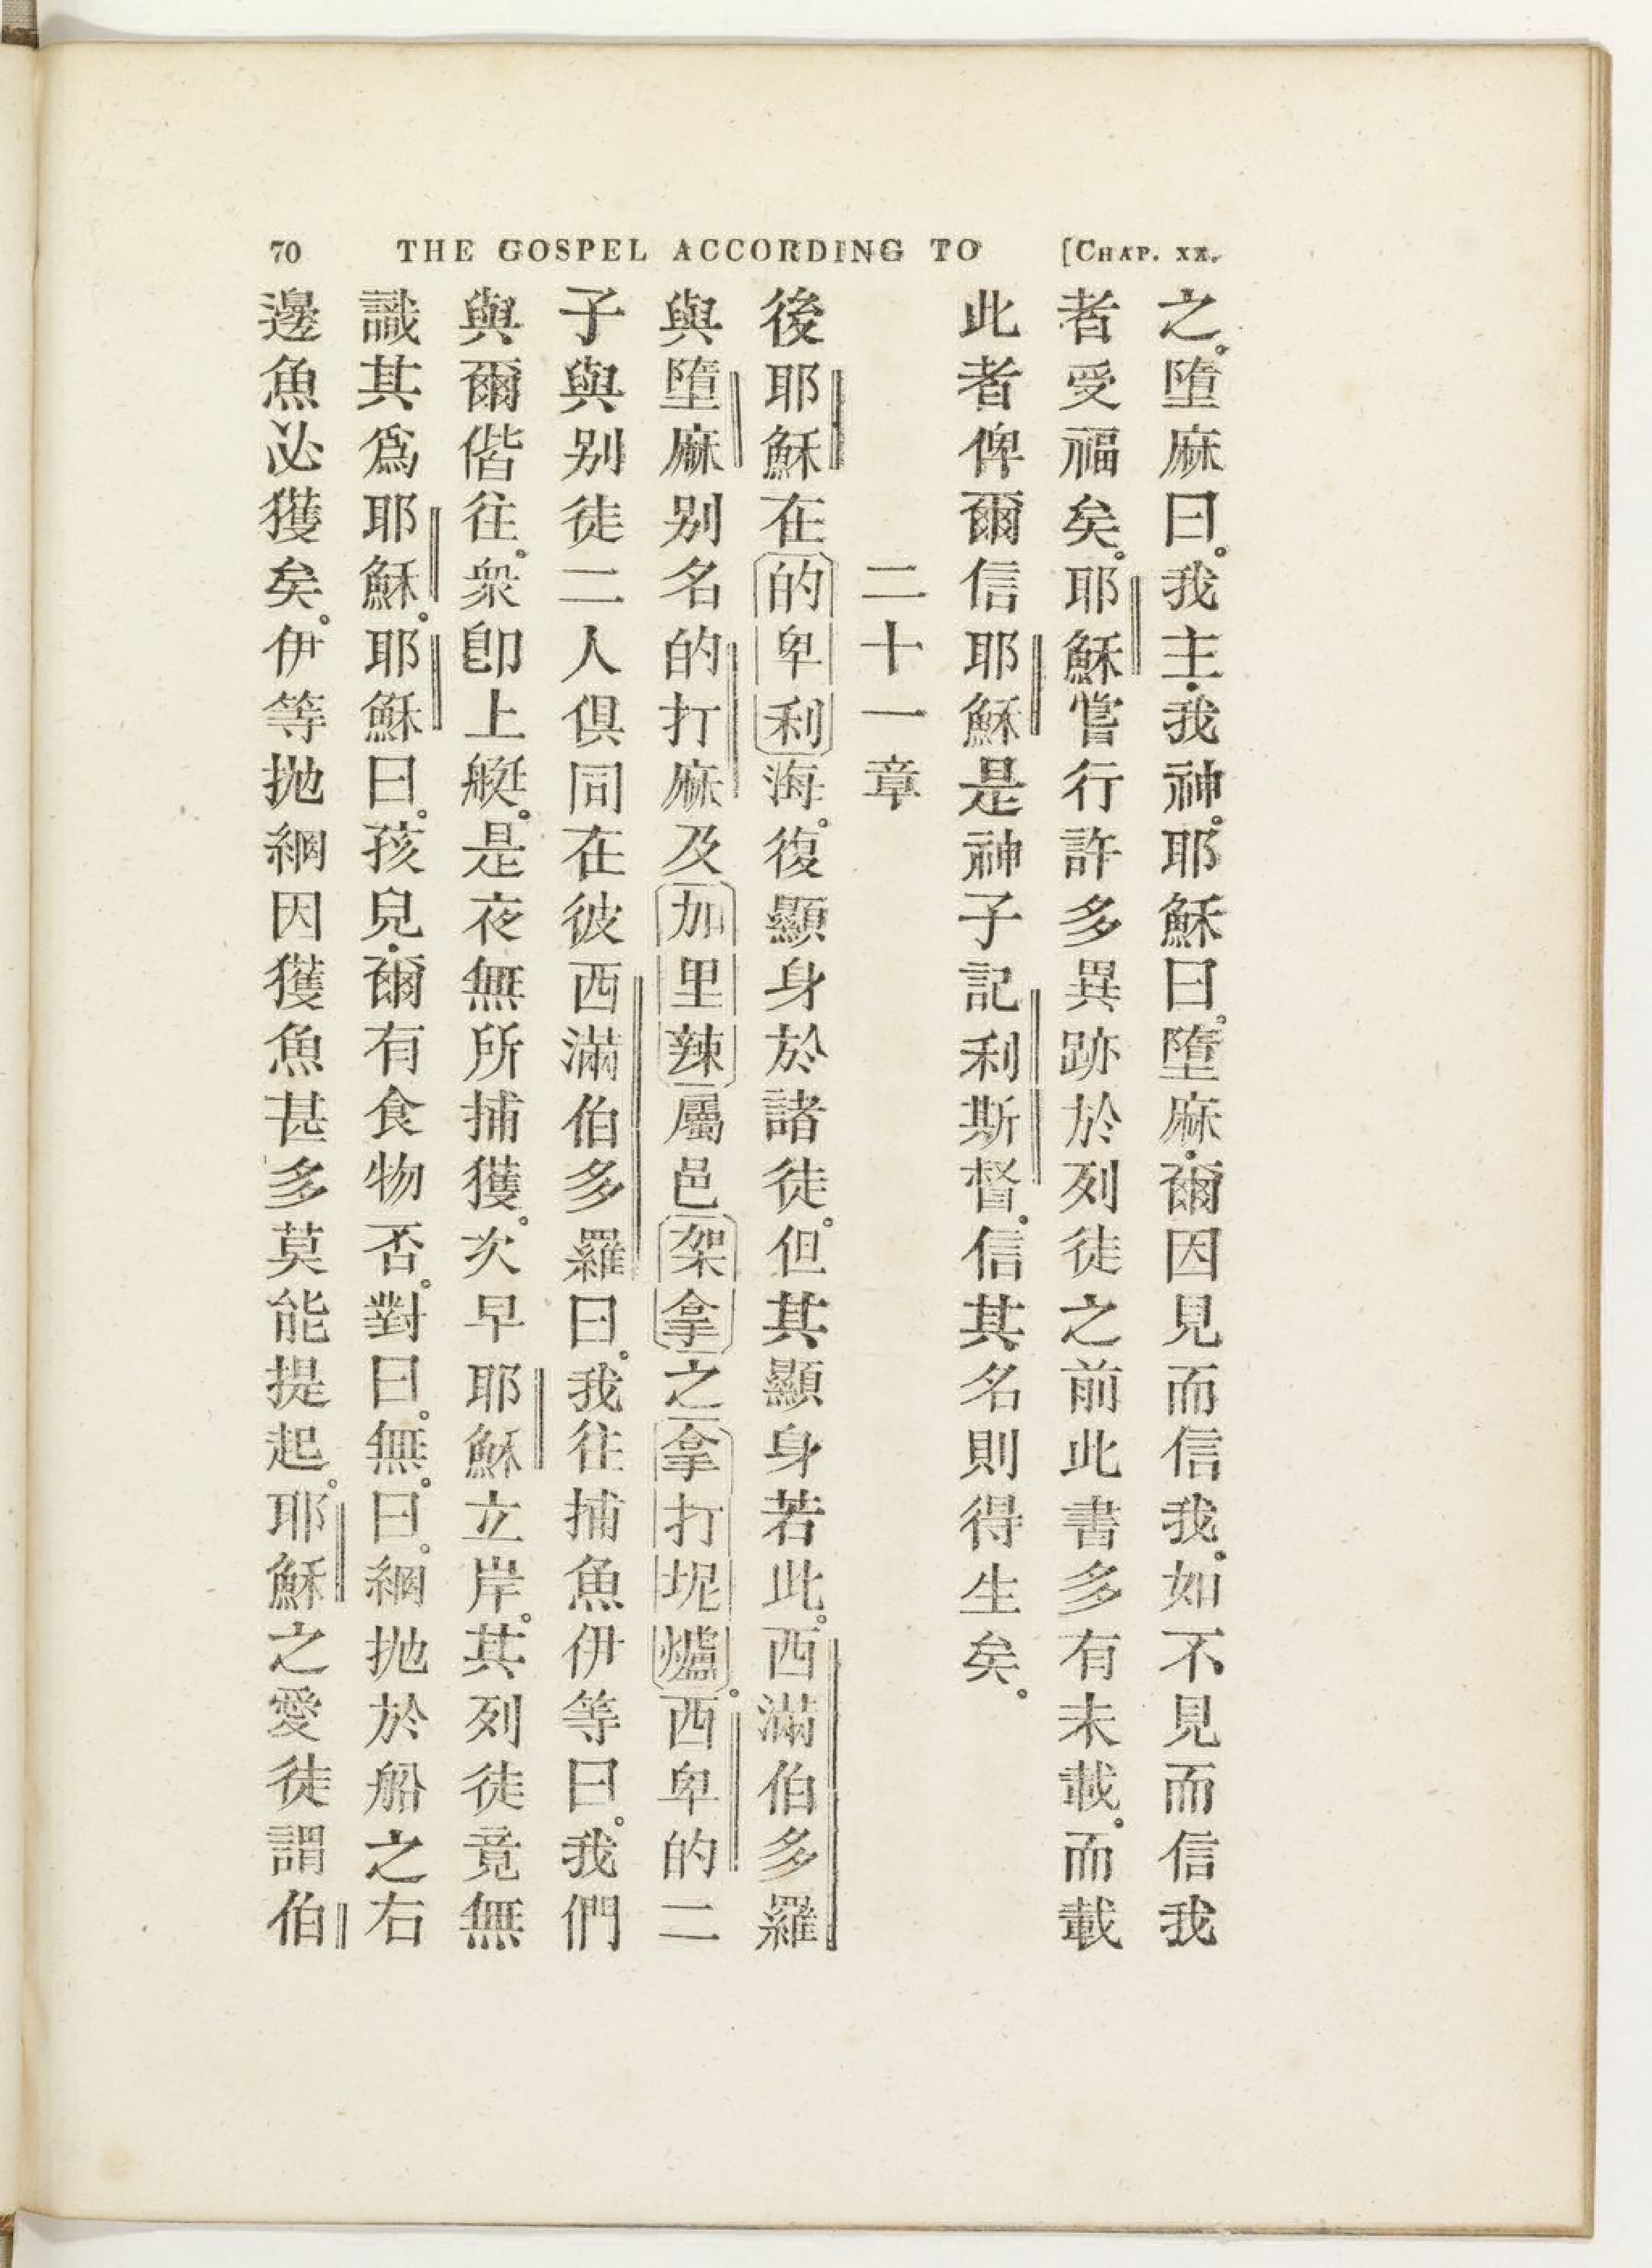 70 THE GOSPEL ACCORDING TO [CHAP. XX.
之。墮麻曰。我主·我神。耶穌曰。墮麻·爾因見而信我。如不見而信我
者受福矣。耶穌嘗行許多異跡於列徒之前此書多有未載。而載
此者俾爾信耶穌是神子記利斯督。信其名則得生矣。
二十一章
後耶穌在的卑利海。復顯身於諸徒。但其顯身若此。西滿伯多羅
與墮麻别名的打麻及加里辣屬邑架拿之拿打坭爐。西卑的二
子與别徒二人俱同在彼西滿伯多羅曰。我往捕魚伊等曰。我們
與爾偕往。衆卽上艇。是夜無所捕獲。次早耶穌立岸。其列徒竟無
識其爲耶穌。耶穌曰。孩兒·爾有食物否。對曰。無。曰。網拋於船之右
邊魚必獲矣。伊等拋網因獲魚甚多莫能提起。耶穌之愛徒謂伯